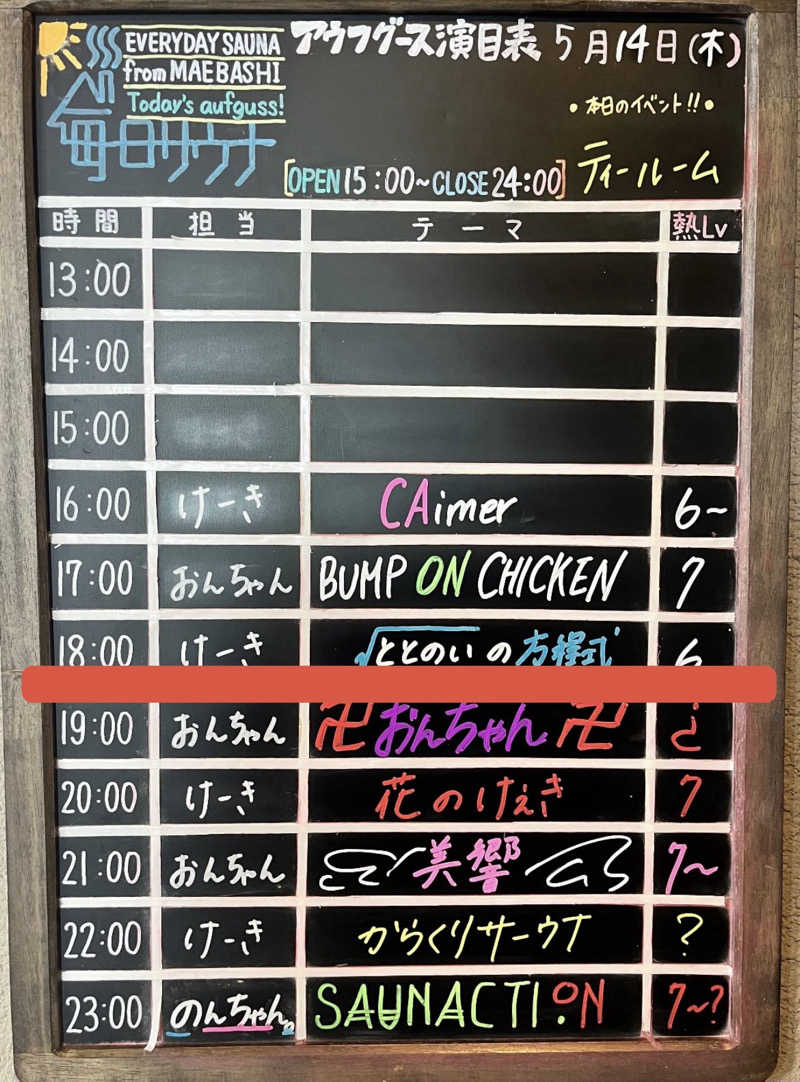 EVERYDAY SAUNA
from MAEBASHI
Today's aufguss!
毎日サウナ
アウフグース演目表 5月14日(木)
•本日のイベント!!•
[OPEN 15:00~CLOSE 24:00] ティールーム
時間 担当 テーマ 熱Lv
13:00
14:00
15:00
16:00 けーき CAimer 6~
17:00 おんちゃん BUMP ON CHICKEN 7
18:00 けーき √ととのいの方程式 6
19:00 おんちゃん 卍おんちゃん卍 ¿
20:00 けーき 花のけぇき 7
21:00 おんちゃん 美響 7~
22:00 けーき からくりサーウナ ?
23:00 のんちゃん。 SAUNACTION 7~?